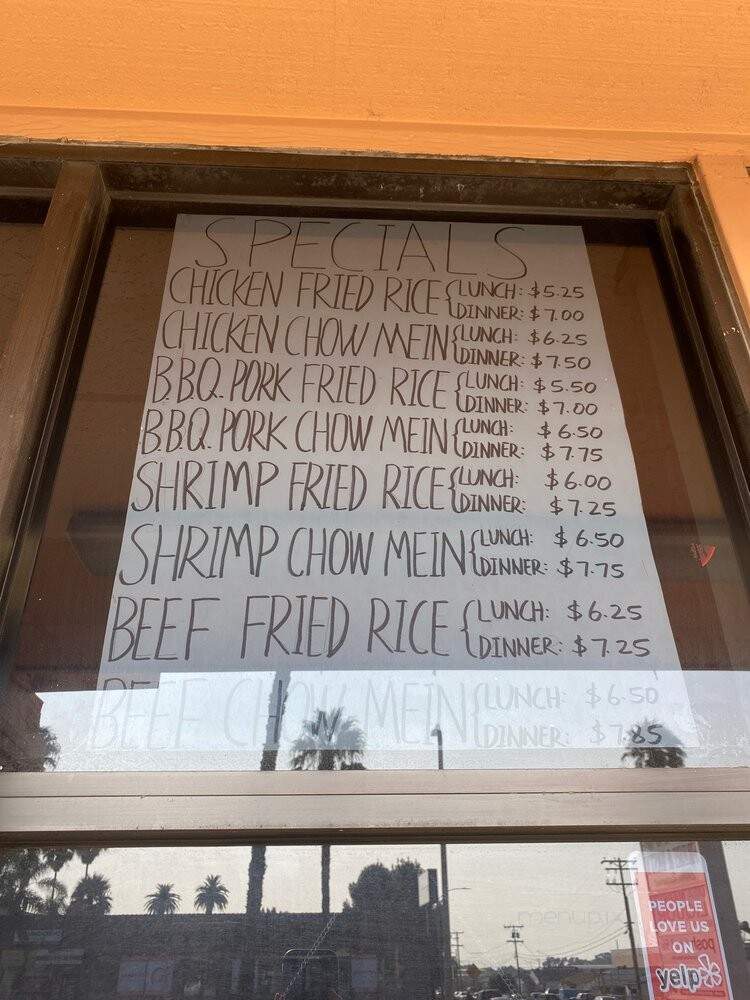 SPECIALS
CHICKEN FRIED RICE { LUNCH: $5.25
DINNER: $7.00
CHICKEN CHOW MEIN { LUNCH: $6.25
DINNER: $7.50
B.B.Q. PORK FRIED RICE { LUNCH: $5.50
DINNER: $7.00
B.B.Q. PORK CHOW MEIN { LUNCH: $6.50
DINNER: $7.75
SHRIMP FRIED RICE { LUNCH: $6.00
DINNER: $7.25
SHRIMP CHOW MEIN { LUNCH: $6.50
DINNER: $7.75
BEEF FRIED RICE { LUNCH: $6.25
DINNER: $7.25
BEEF CHOW MEIN { LUNCH: $6.50
DINNER: $7.85
PEOPLE
LOVE US
ON
yelp